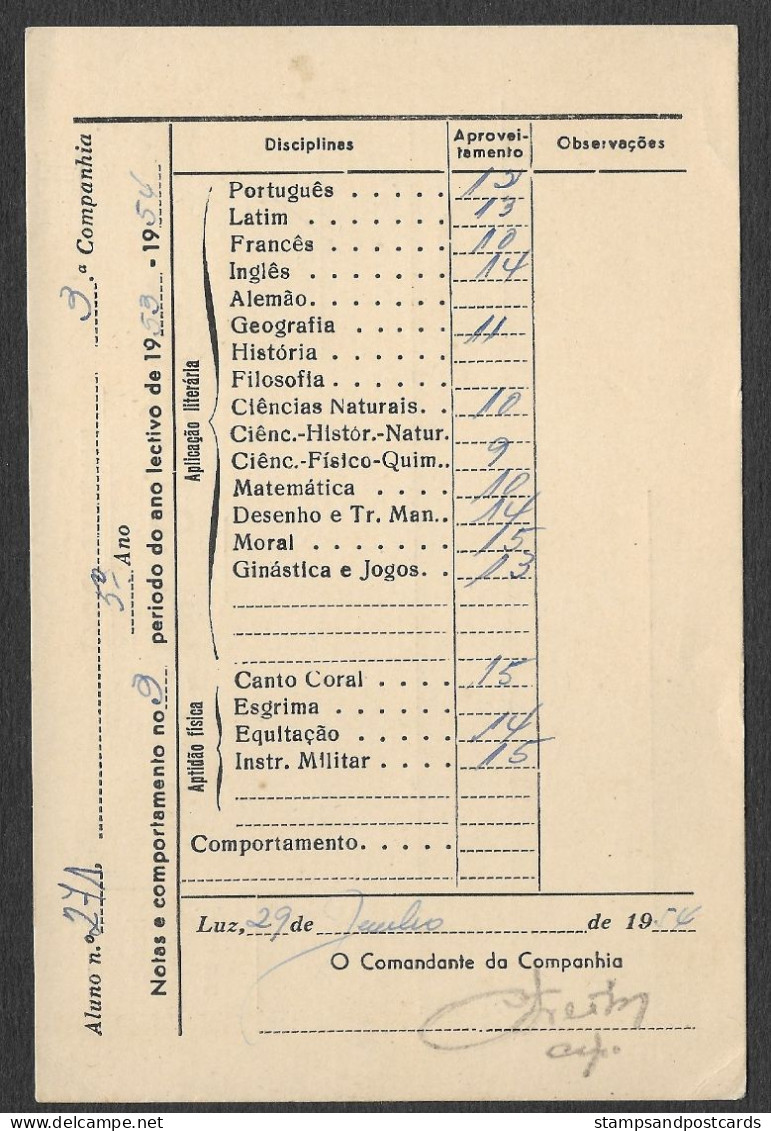 Aluno n.º 271, 3.ª Companhia
5º Ano
Notas e comportamento no 3 periodo do ano lectivo de 1953 - 1954
Disciplinas Aprovei-tamento Observações
Aplicação literária
Português . . . . . 12
Latim . . . . . . . 13
Francês . . . . . . 10
Inglês . . . . . . . 14
Alemão. . . . . . .
Geografia . . . . . 11
História . . . . . .
Filosofia . . . . . .
Ciências Naturais. . 10
Ciênc.-Histór.-Natur.
Ciênc.-Físico-Quim.. 9
Matemática . . . . 10
Desenho e Tr. Man.. 14
Moral . . . . . . . 15
Ginástica e Jogos. . 13
Aptidão física
Canto Coral . . . . 15
Esgrima . . . . . .
Equitação . . . . . 14
Instr. Militar . . . . 15
Comportamento. . . . .
Luz, 29 de Junho de 1954
O Comandante da Companhia
cap.
stampsandpostcards